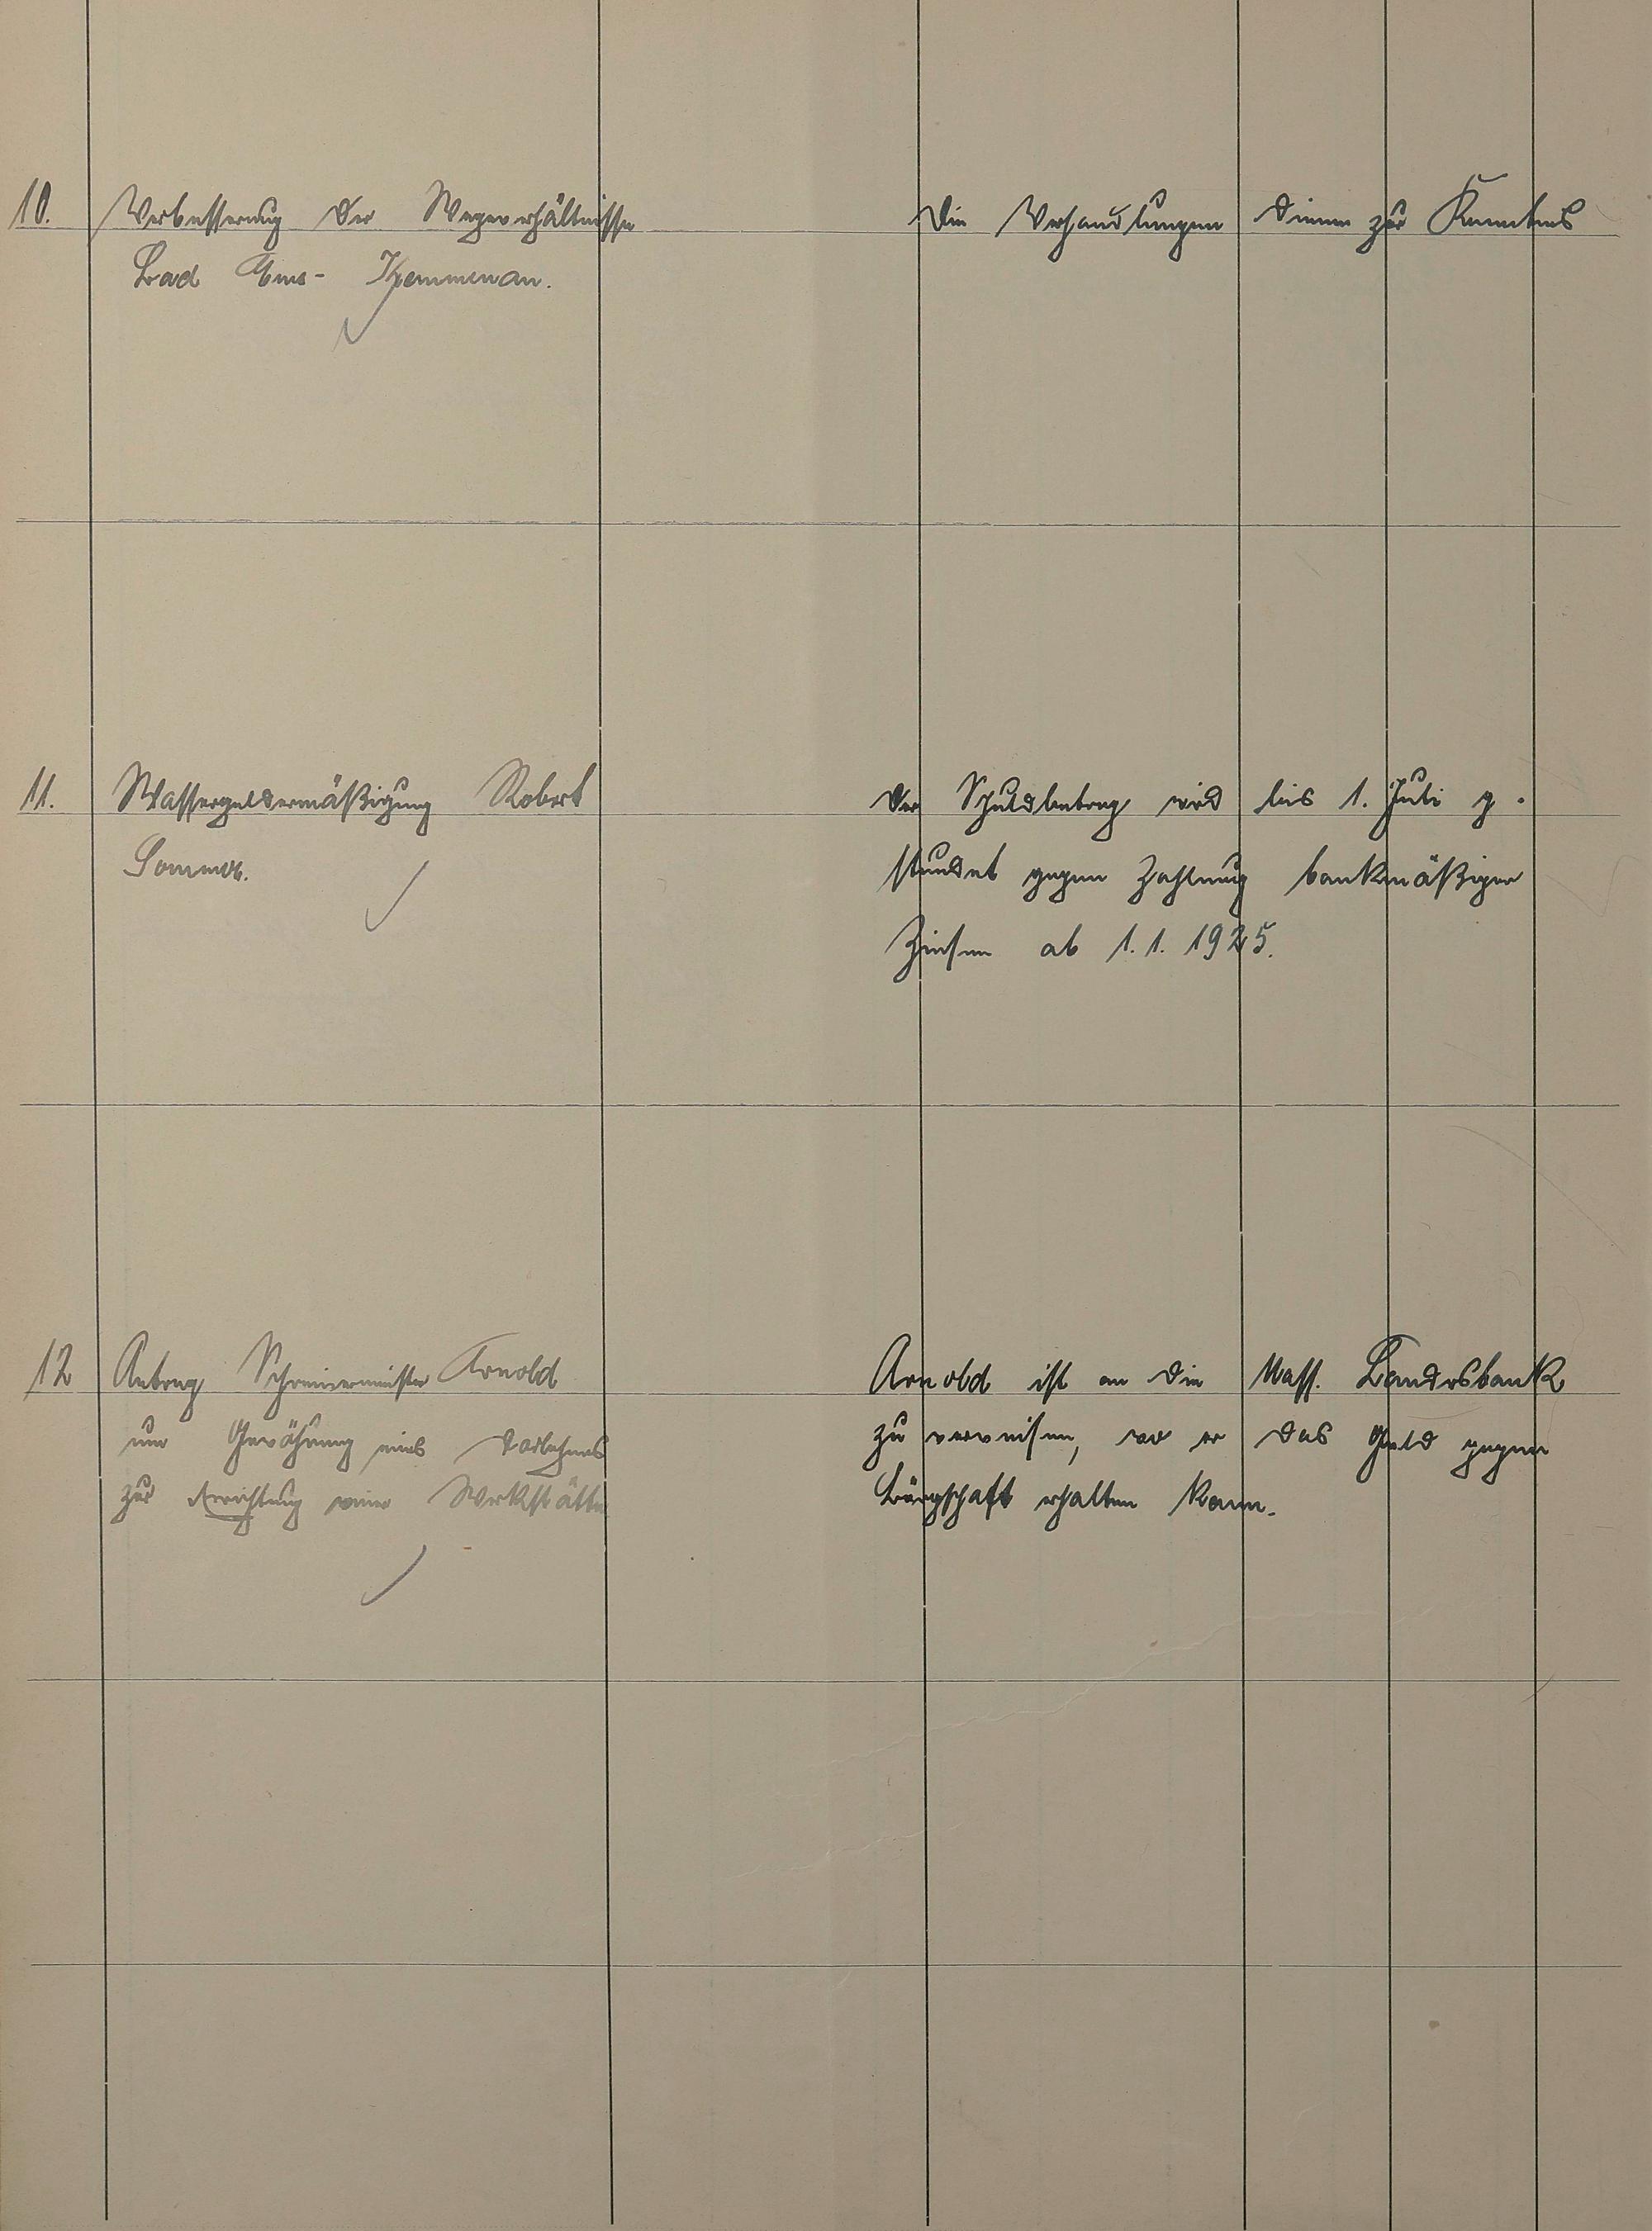 10. Verbesserung der Wegeverhältnisse
Bad Ems - Kemmenau.
Die Verhandlungen dienen zur Kenntnis
11. Wassergeldermäßigung Robert
Sommer.
Der Schuldbetrag wird bis 1. Juli g.
stundet gegen Zahlung bankmäßiger
Zinsen ab 1. 1. 1925.
12 Antrag Schreinermeister Arnold
um Gewährung eines Darlehens
zur Errichtung einer Werkstätte
Arnold ist an die Nass. Landesbank
zu verweisen, wo er das Geld gegen
Bürgschaft erhalten kann.